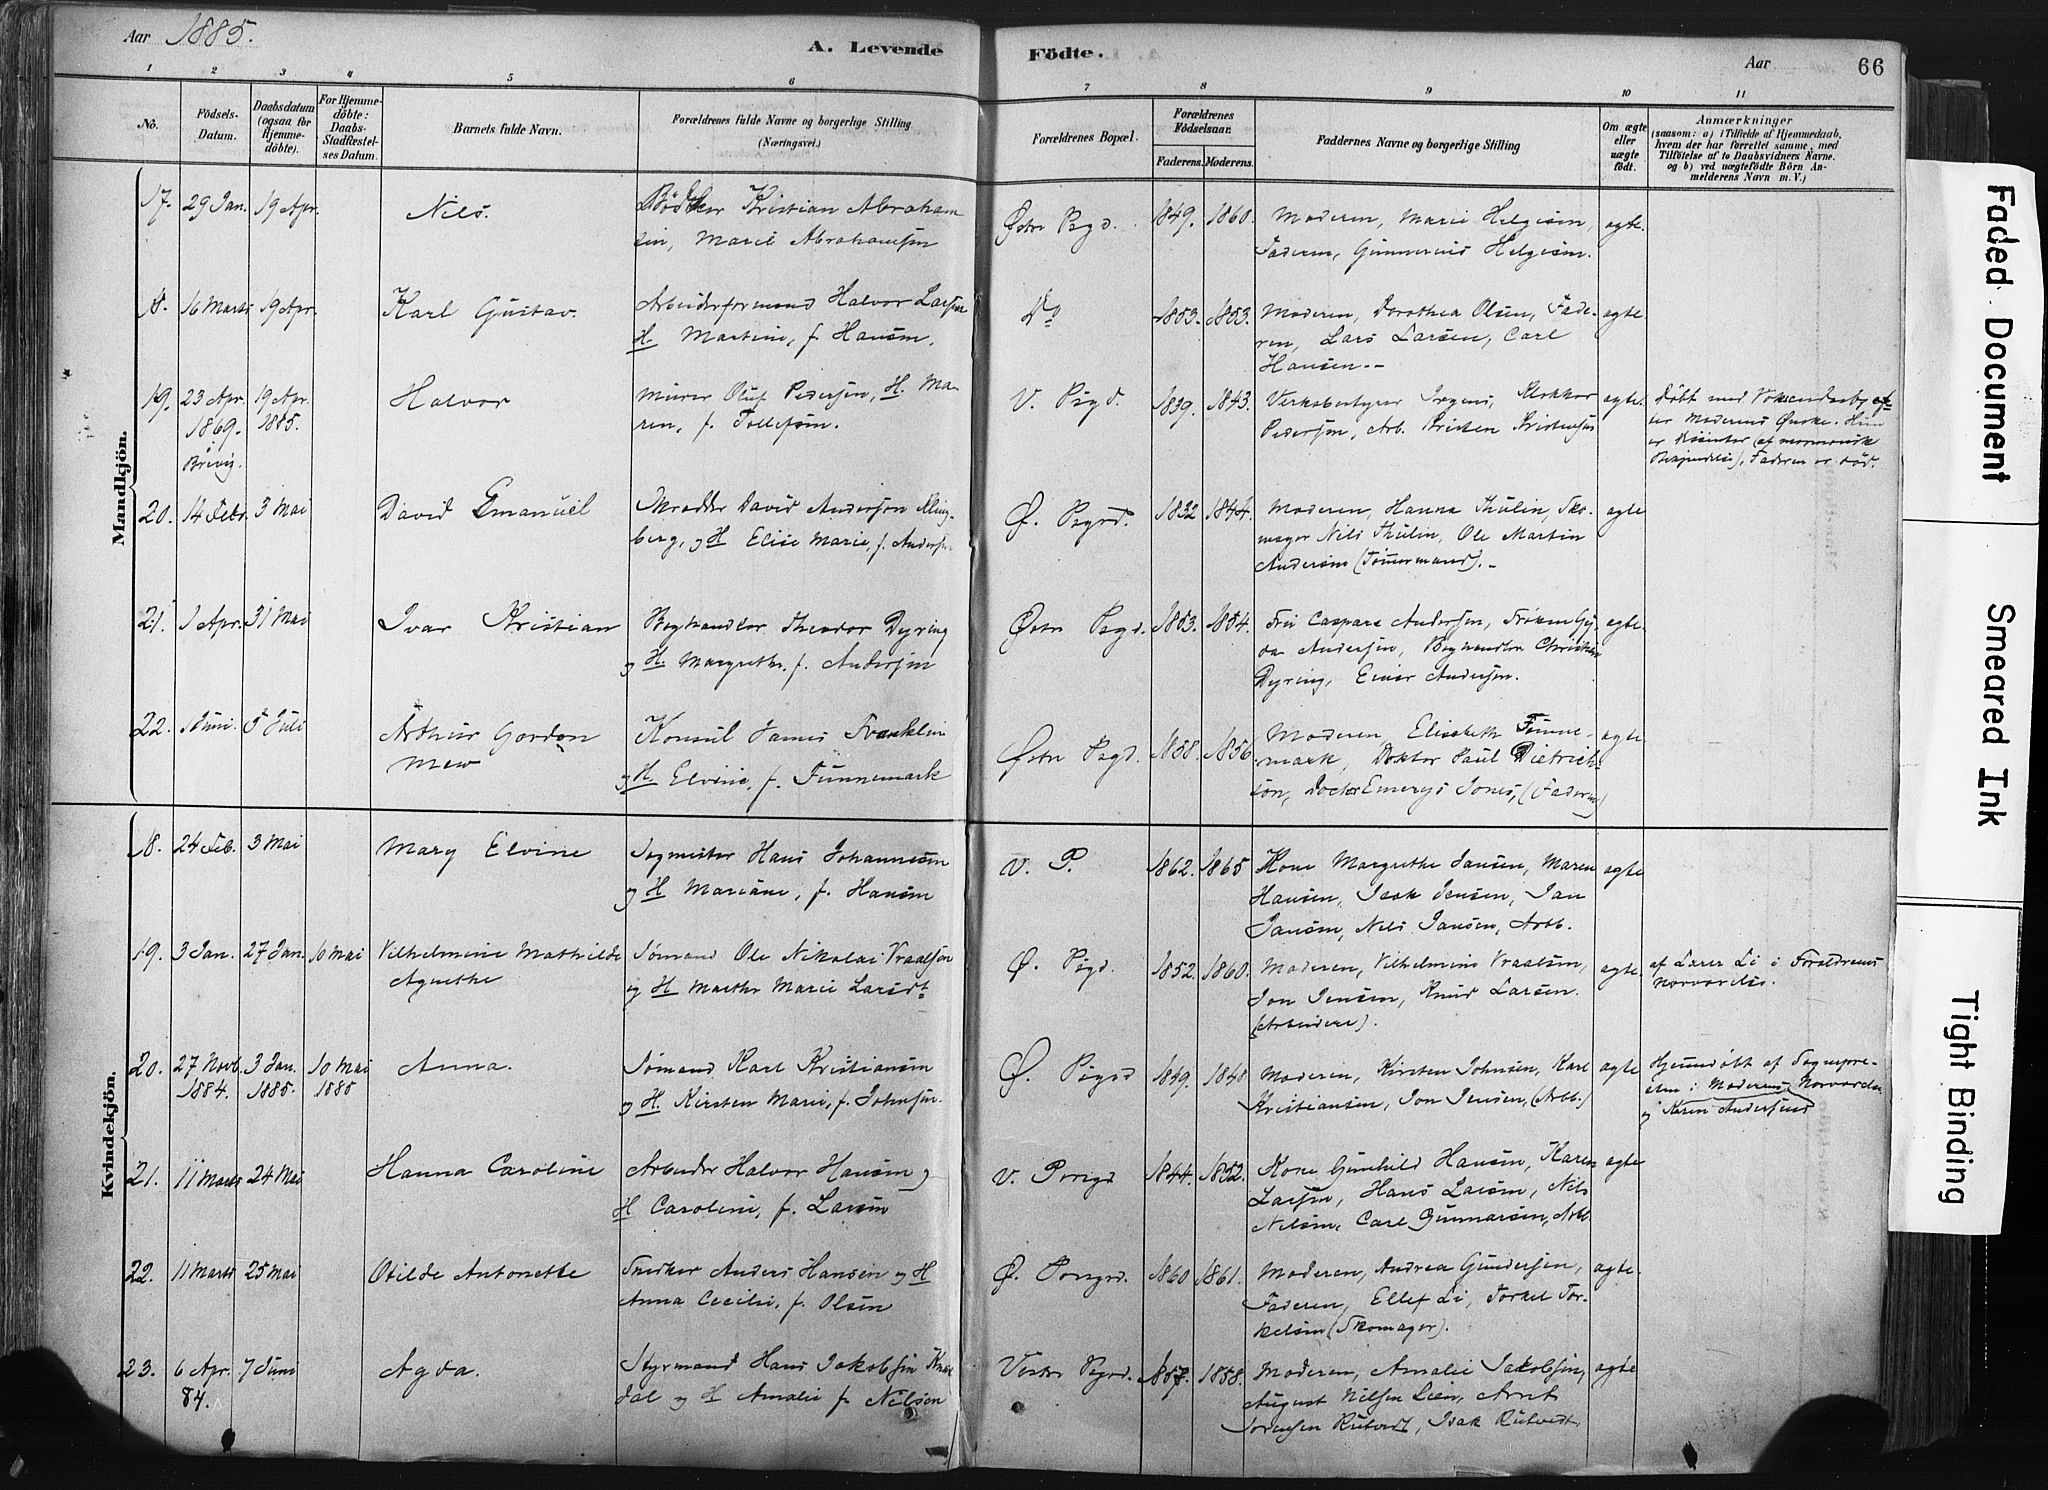 Aar 1885.
A. Levende Födte.
Aar
66
1 2 3 4 5 6 7 8 9 10 11
No.
Födsels-
Datum.
Daabsdatum
(ogsaa for
Hjemme-
döbte).
For Hjemme-
döbte:
Daabs-
Stadfæstel-
ses Datum.
Barnets fulde Navn.
Forældrenes fulde Navne og borgerlige Stilling
(Næringsvei.)
Forældrenes Bopæl.
Forældrenes
Födselsaar.
Faderens. Moderens.
Faddernes Navne og borgerlige Stilling
Om ægte
eller
uægte
födt.
Anmærkninger
(saasom: a) i Tilfælde af Hjemmedaab,
hvem der har forrettet samme, med
Tilföielse af to Daabsvidners Navne.
og b) ved uægtefödte Börn An-
melderens Navn m. V.)
Mandkjön.
17. 29 Jan. 19 Apr. Nils. Bödker Kristian Abraham
sen, Marie Abrahamsen
Østre Psgd. 1849. 1860. Moderen, Marie Helgesen,
Faderen, Gunnerius Helgesen. ægte.
18. 16 Marts 19 Apr. Karl Gustav. Arbeiderformand Halvor Larsen
H. Martine, f. Hansen.
Do 1853. 1853. Moderen, Dorothea Olsen, Fade-
ren, Lars Larsen, Carl
Hansen.- ægte
19. 23 Apr. 1869. Brevig. 19 Apr. 1885. Halvor Murer Oluf Pedersen, H. Ma-
ren, f. Tollefsen.
V. Psgd. 1839. 1843. Verksbestyrer Irgens, Klokker
Pedersen, Arb. Kristen Kristensen ægte.
Döbt med Voksendaab ef-
ter Moderens Ønske. Hun
er Dissenter (af mormonsk
Bekjendelse), Faderen er död.
20. 14 Febr. 3 Mai David Emanuel Skrædder David Andersen Kling-
berg, og H Elise Marie, f. Andersen
Ø. Psgrd. 1832 1844. Moderen, Hanna Thulin, Sko-
mager Nils Thulin, Ole Martin
Andersen (Tömmermand).- ægte
21. 1 Apr. 31 Mai Ivar Kristian Boghandler Theodor Dyring
og H. Margrethe, f. Andersen
Østre Psgd. 1853. 1854. Fru Caspara Andersen, Fröken Gy-
da Andersen, Boghandler Christian
Dyring, Einar Andersen. ægte.
22. 1 Juni. 5 Juli Arthur Gordon
Mew Konsul James Franklin
og H. Elvine, f. Funnemark
Østre Psgd. 1858. 1856. Moderen, Elisabeth Funne-
mark, Doktor Paul Dietrich-
son, Doctor Emerys Jones, (Faderen) ægte
Kvindekjön.
18. 24 Feb. 3 Mai Mary Elvine Sogmester Hans Johannesen
og H Mariane, f. Hansen
V. P. 1862. 1865 Kone Margrethe Jansen, Maren
Hansen, Isak Jensen, Jan
Jansen, Nils Jansen, Arbb. ægte
19. 3 Jan. 27 Jan. 10 Mai Vilhelmine Mathilde
Agnethe Sömand Ole Nikolai Vraalsen
og H Marthe Marie Larsdt.
Ø. Psgd. 1852. 1860. Moderen, Vilhelmine Vraalsen,
Jon Jensen, Knud Larsen.
(Arbeidere). ægte.
af Lærer Li i Forældrenes
Nærværelse.
20. 27 Novb. 1884. 3 Jan. 1885. 10 Mai 1885 Anna. Sömand Karl Kristiansen
og H. Kirsten Marie, f. Johnsen.
Ø. Psgrd 1849. 1848 Moderen, Kirsten Johnsen, Karl
Kristiansen, Jon Jensen, (Arbb.) ægte
Hjemdöbt af Sognepre-
sten i Moderens Nærværelse
og Karen Andersens
21. 11 Marts 24 Mai Hanna Caroline Arbeider Halvor Hansen og
H Caroline, f. Larsen
V. Porsgd 1844. 1852. Kone Gunhild Hansen, Karen
Larsen, Hans Larsen, Nils
Nilsen, Carl Gunnarsen, Arbb. ægte
22. 11 Marts 25 Mai Otilde Antonette Snedker Anders Hansen og H
Anna Cecilie, f. Olsen
Ø. Porsgrd. 1860 1861. Moderen, Andrea Gundersen,
Faderen, Ellef Li, Torkel Tor-
kelsen (Skomager). ægte.
23. 6 Apr. 84. 7 Juni Agda. Styrmand Hans Jakobsen
dal og H Amalie f. Nilsen
Vestre Psgrd. 1857. 1858. Moderen, Amalie Jakobsen,
August Nilsen Leen, Arnt
Sörensen Rutvedt, Isak Rutvedt. ægte
Faded Document
Smeared Ink
Tight Binding